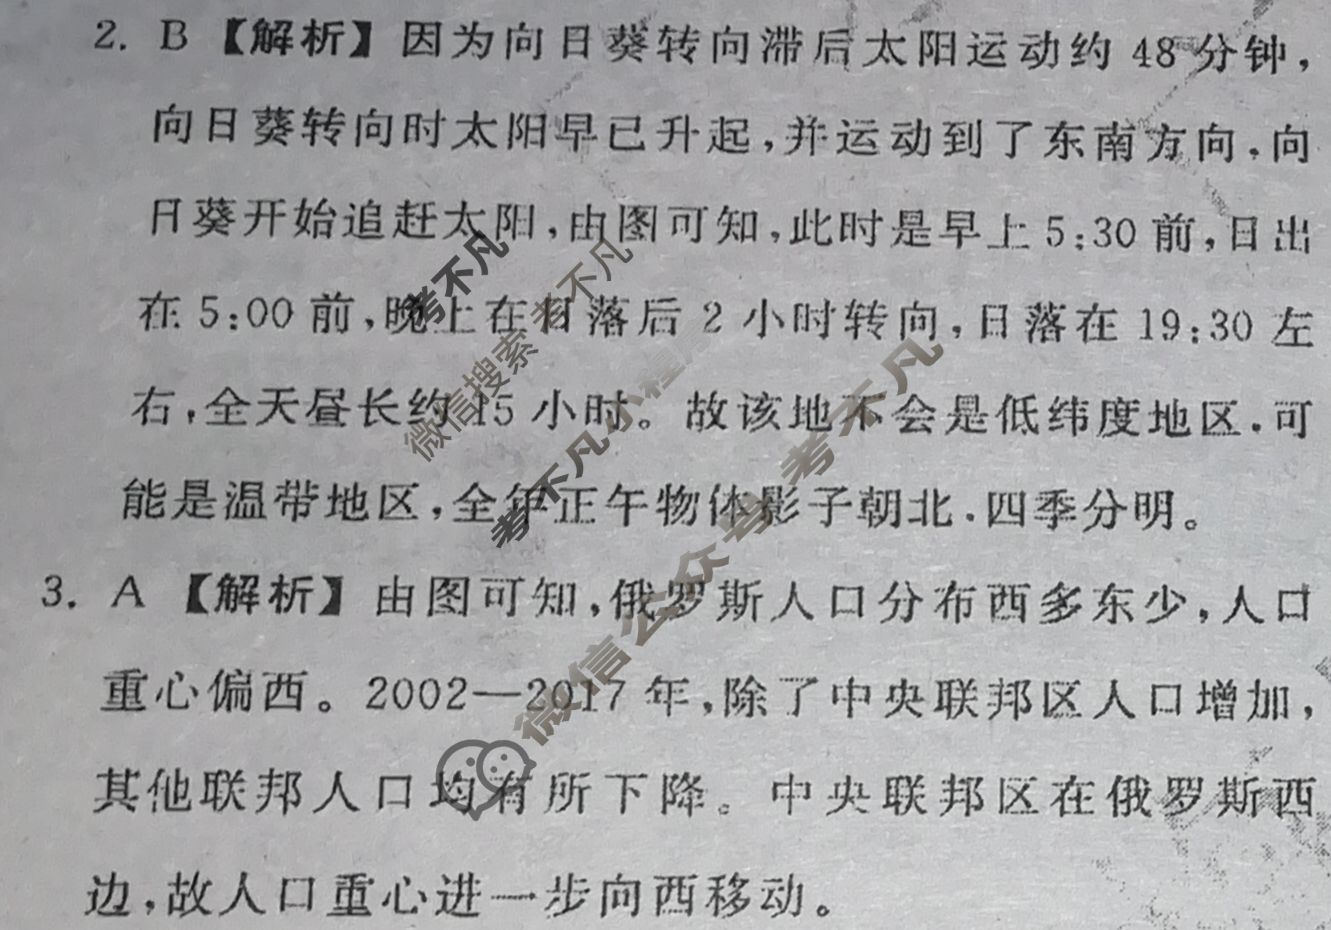 2. B 【解析】因为向日葵转向滞后太阳运动约 48 分钟,
向日葵转向时太阳早已升起,并运动到了东南方向,向
日葵开始追赶太阳,由图可知,此时是早上 5:30 前,日出
在 5:00 前,晚上在日落后 2 小时转向,日落在 19:30 左
右,全天昼长约 15 小时。故该地不会是低纬度地区,可
能是温带地区,全年正午物体影子朝北,四季分明。
3. A 【解析】由图可知,俄罗斯人口分布西多东少,人口
重心偏西。2002—2017 年,除了中央联邦区人口增加,
其他联邦人口均有所下降。中央联邦区在俄罗斯西
边,故人口重心进一步向西移动。
考不凡
考不凡
微信搜索
考不凡小程序
微信公众号 考不凡